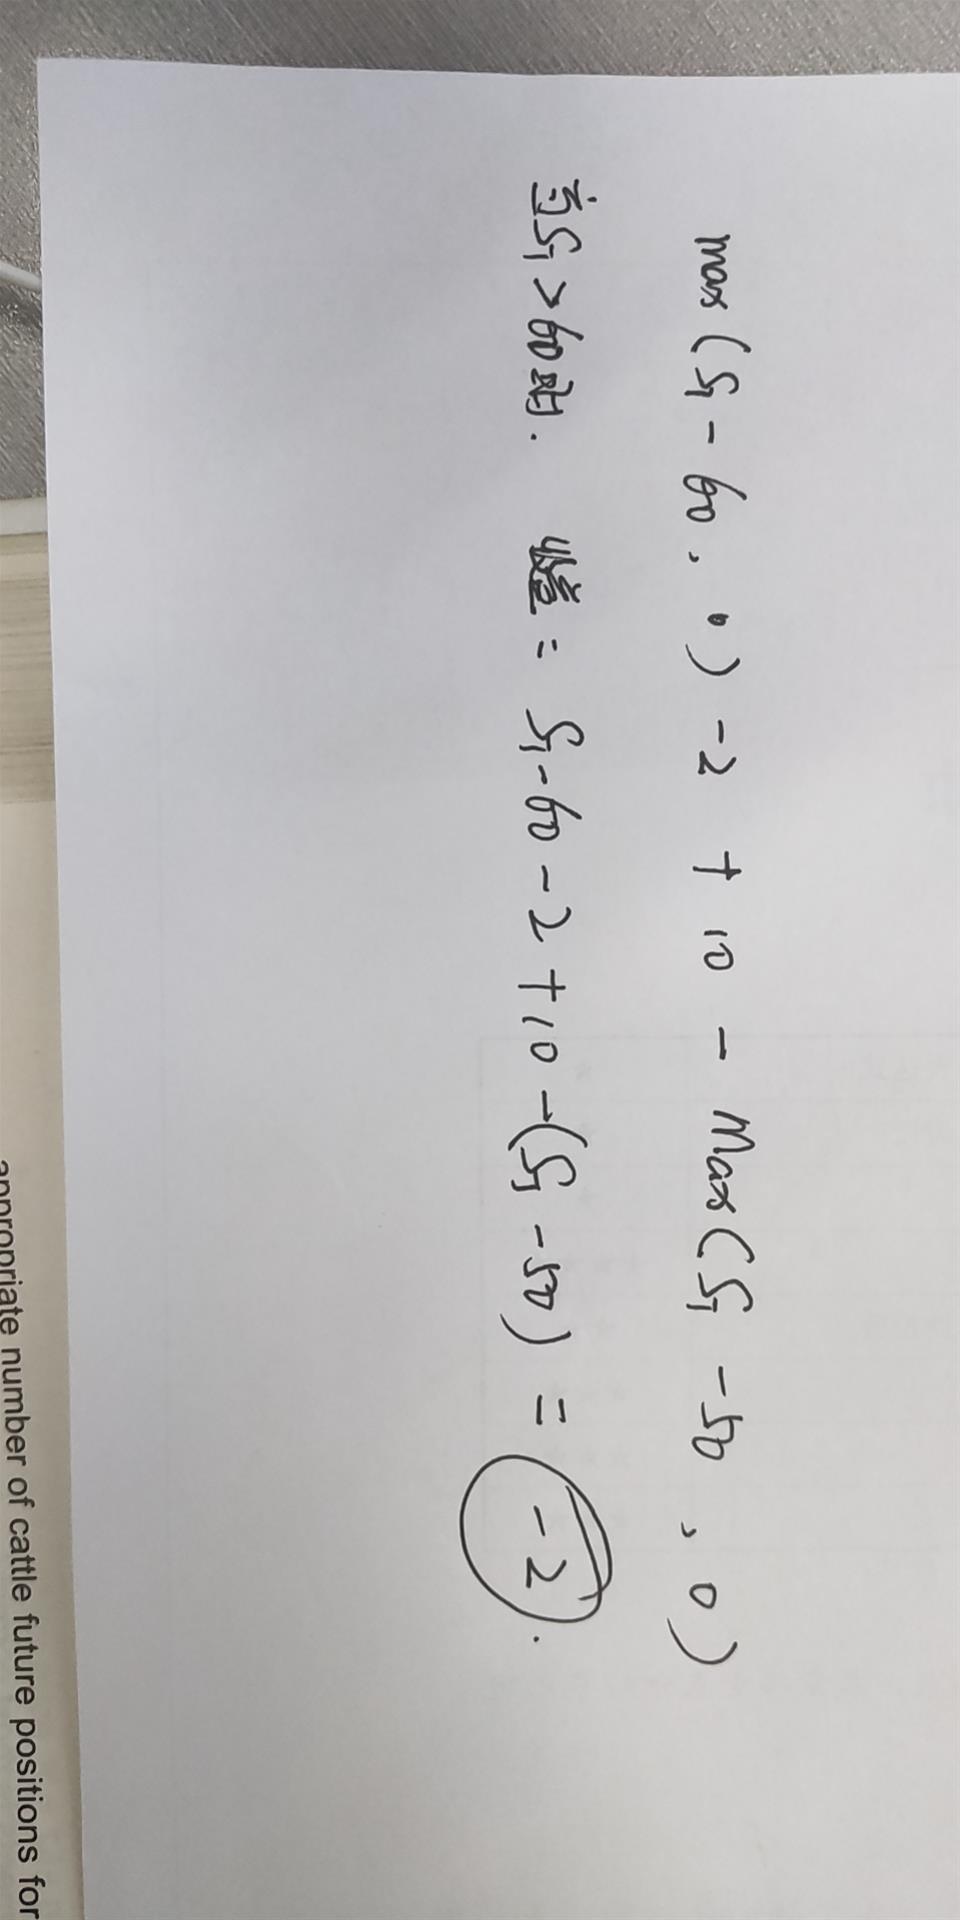 max(S_T - 60, 0) - 2 + 10 - Max(S_T - 50, 0)
当S_T > 60时. 收益 = S_T - 60 - 2 + 10 - (S_T - 50) = -2.
appropriate number of cattle future positions for